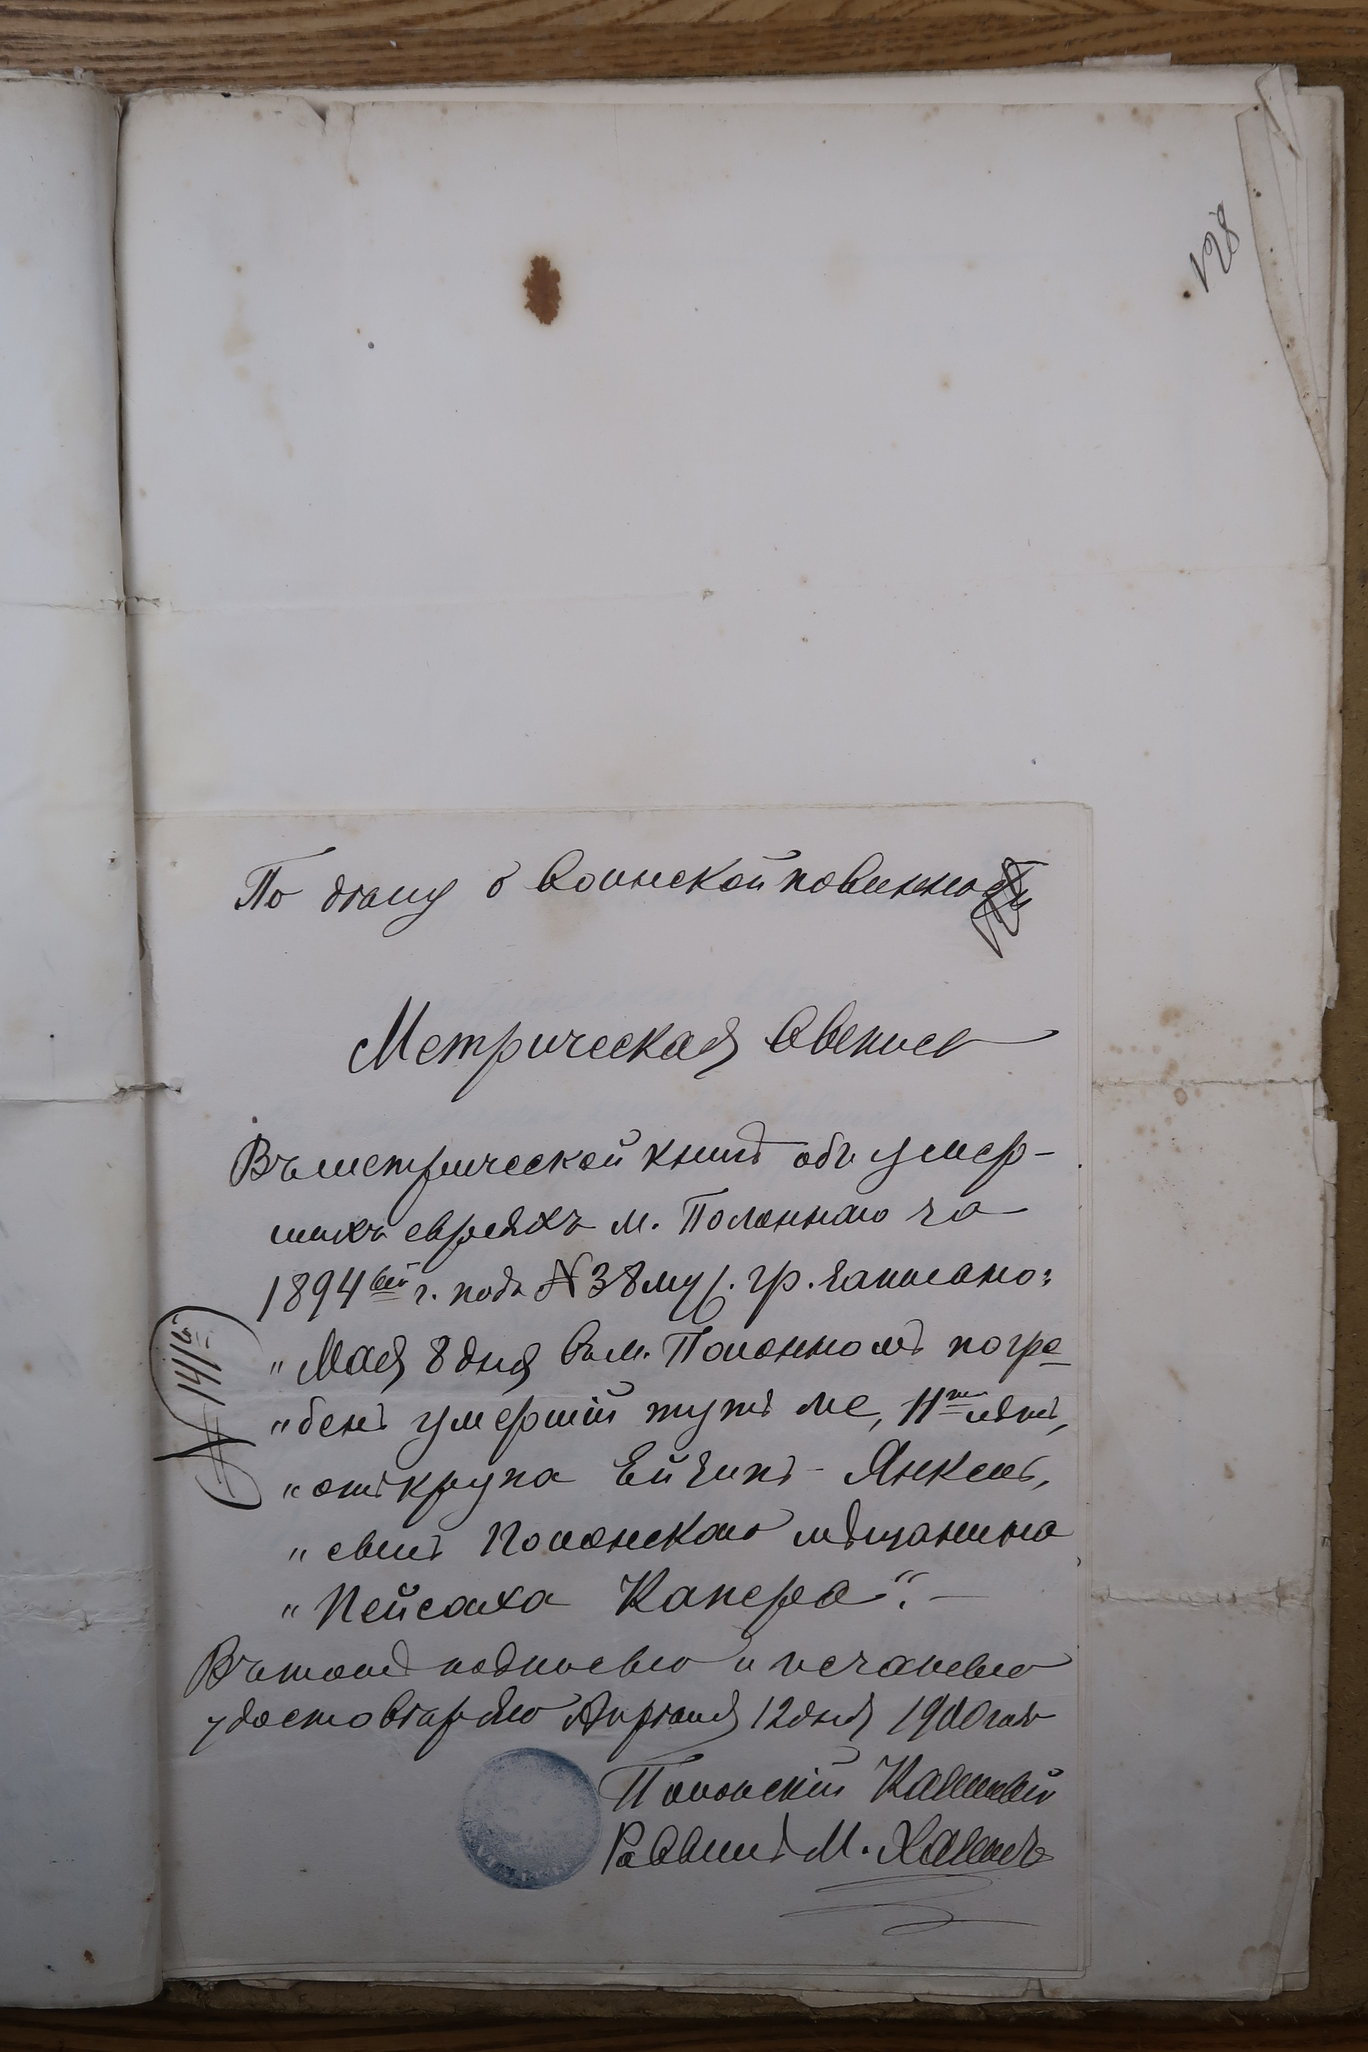 128
По дѣлу о воинской повинности
Метрическая выпись
Въ метрической книгѣ объ умер-
шихъ евреяхъ м. Полоннаго за
1894ый г. подъ № 38 муж. гр. записано:
„Мая 8 дня въ м. Полонномъ погре-
„бенъ умершій тутъ же, 11ти лѣтъ,
„отъ крупа Ейзикъ-Янкель,
„сынъ Полонскаго мѣщанина
„Пейсаха Капера“. —
Въ томъ подписью и печатью
удостовѣряю Апрѣля 12 дня 1900 года
Полонскій Казенный
Раввинъ М.
№ 141